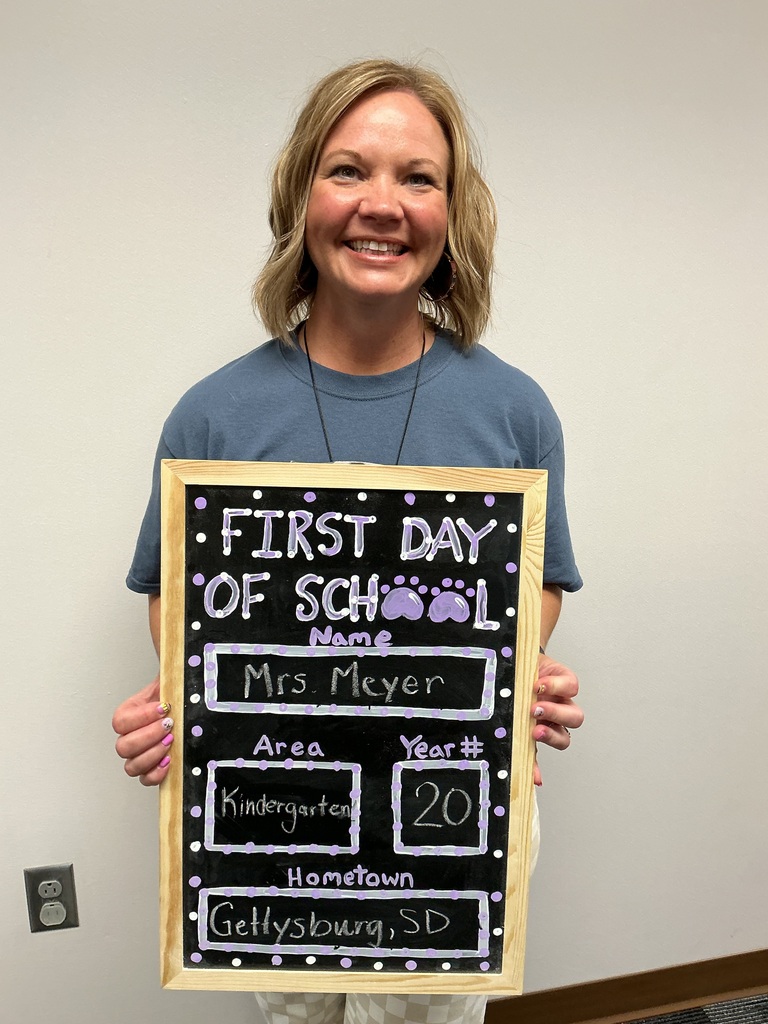 FIRST DAY
OF SCHOOL
Name
Mrs. Meyer
Area Year #
Kindergarten 20
Hometown
Gettysburg, SD